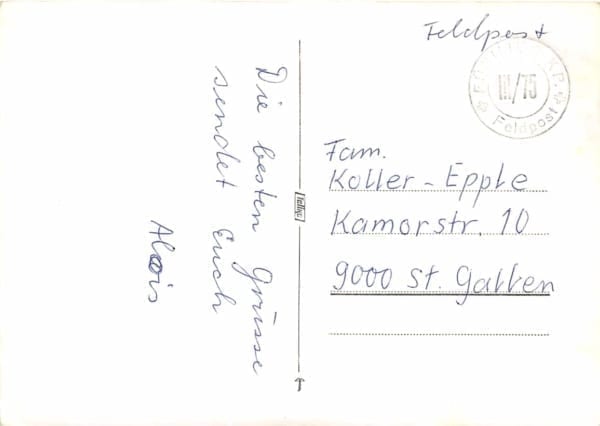 Die besten Grüsse
sendet Euch
Alois
Feldpost
III/75
Feldpost
Fam.
Koller-Epple
Kamorstr. 10
9000 St. Gallen